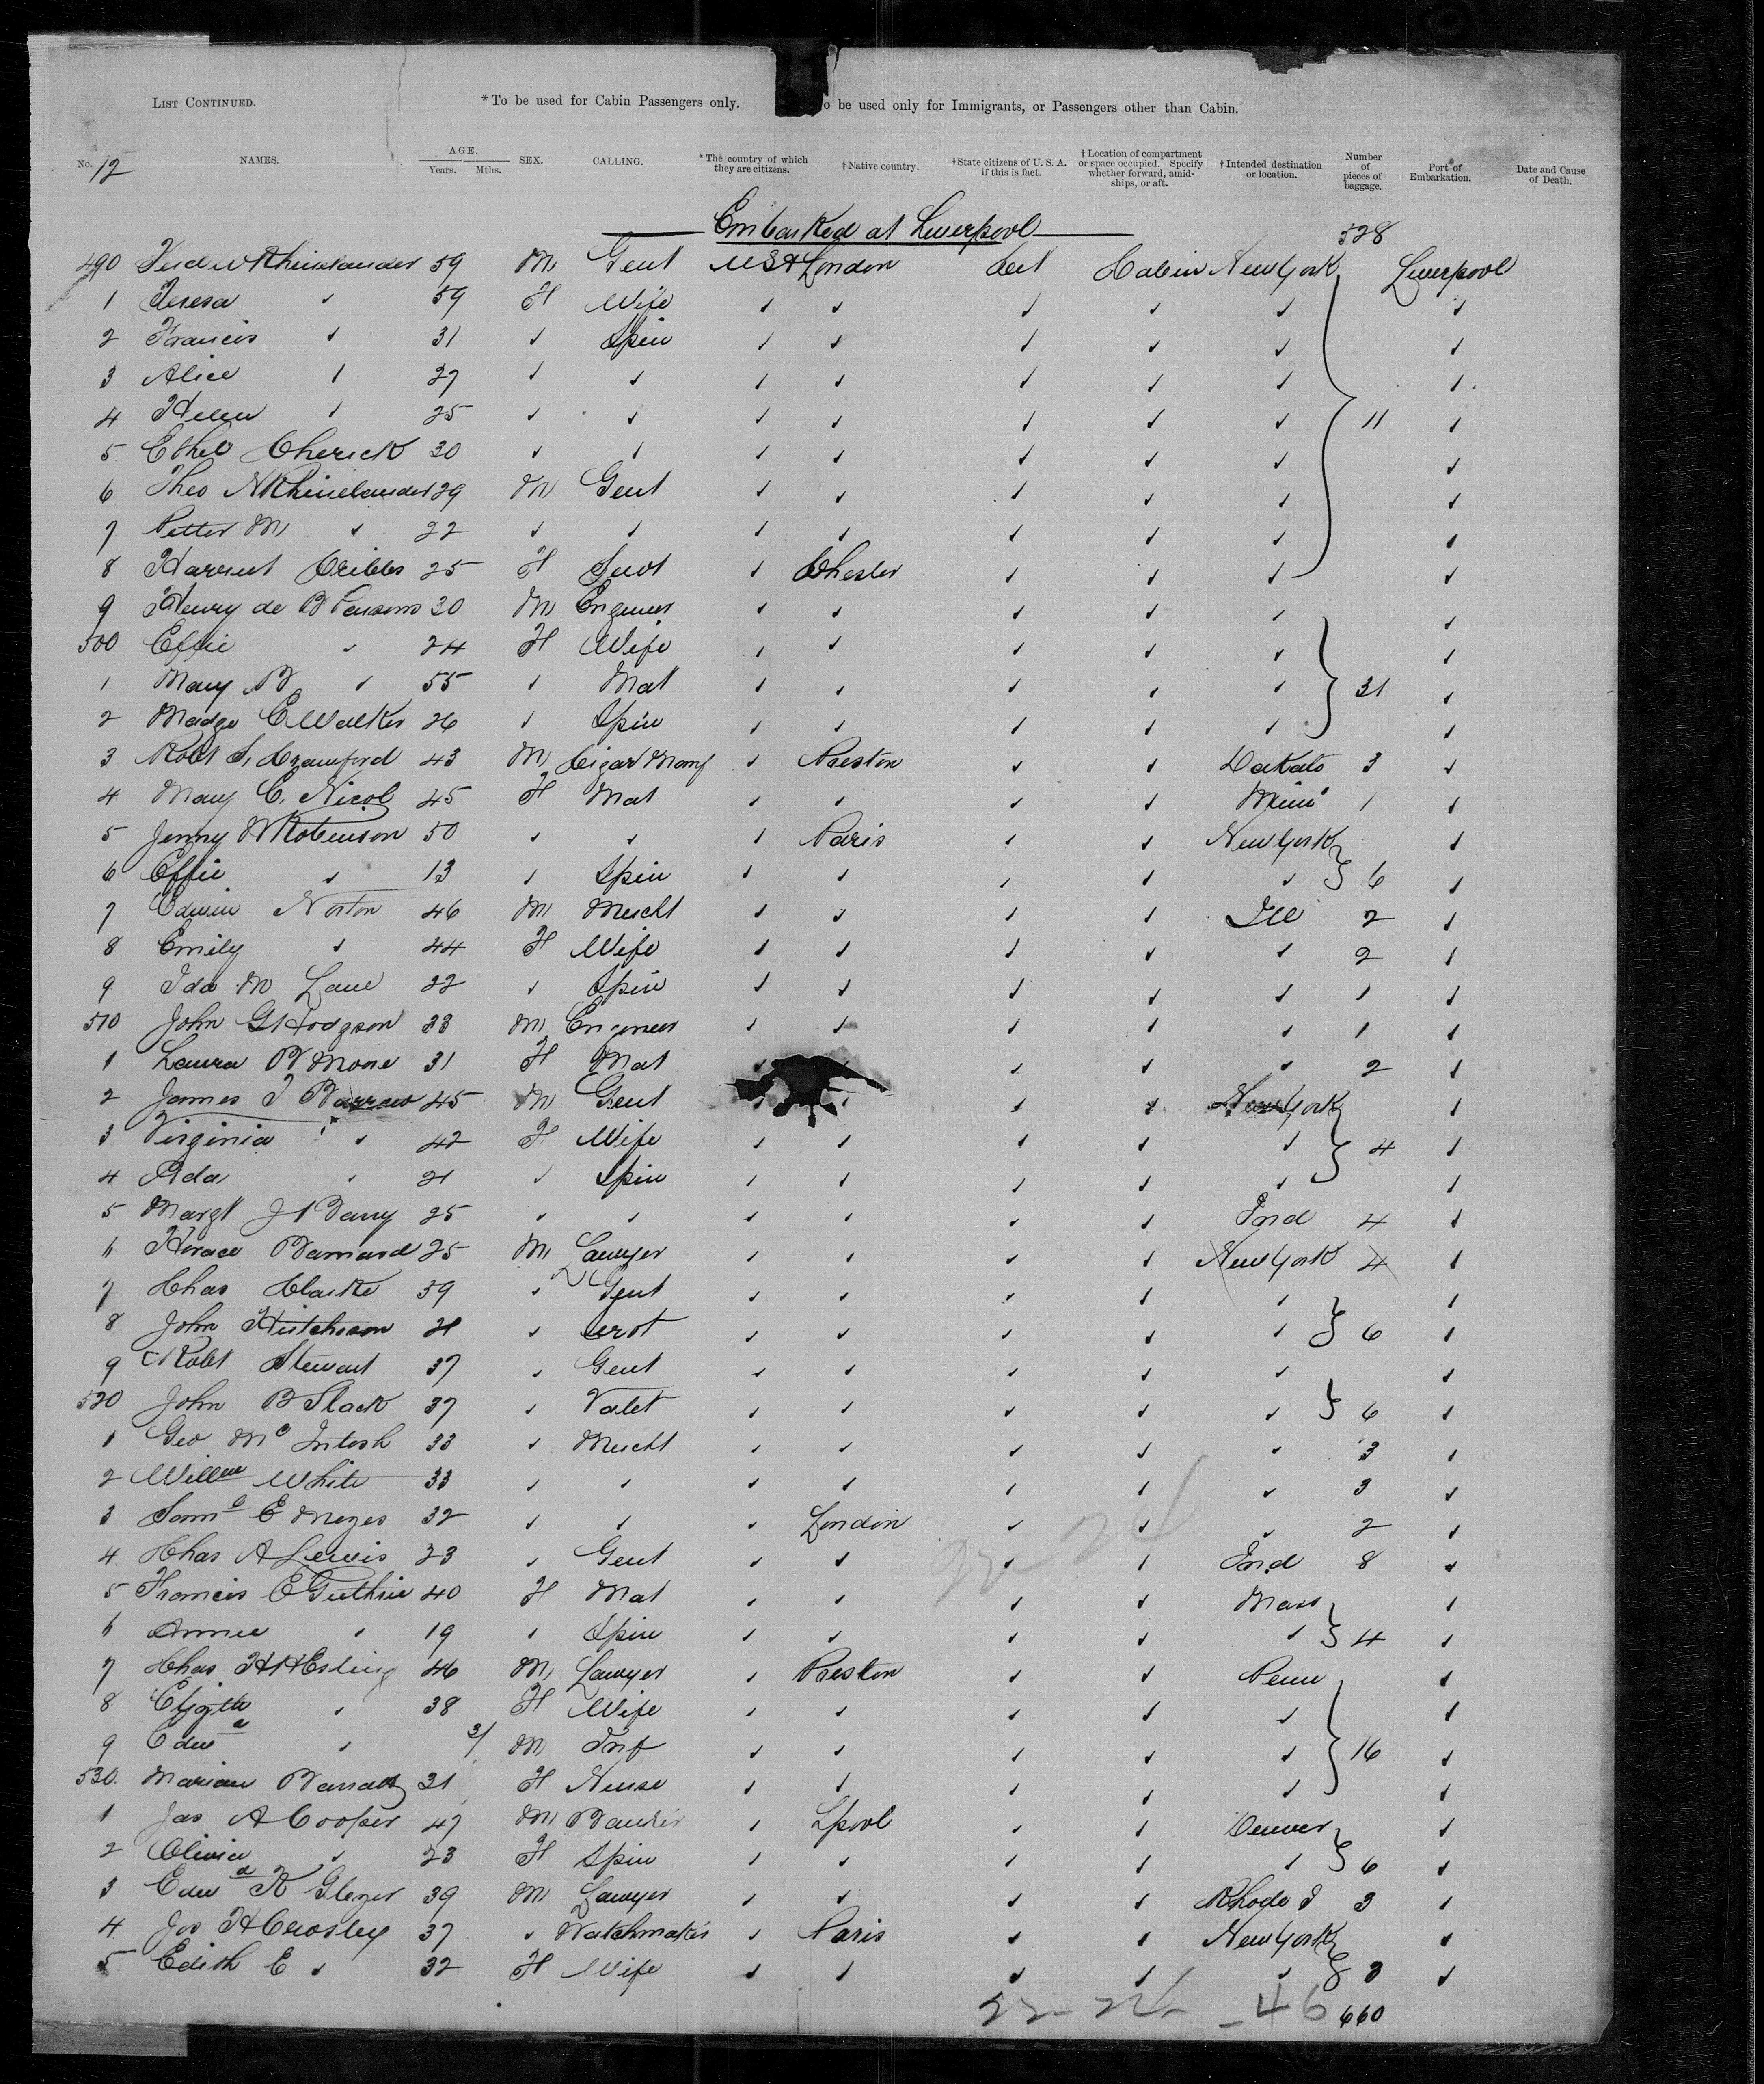 LIST CONTINUED. *To be used for Cabin Passengers only. o be used only for Immigrants, or Passengers other than Cabin.
No. 12 NAMES. AGE. Years. Mths. SEX. CALLING. *The country of which they are citizens. †Native country. †State citizens of U. S. A. if this is fact. †Location of compartment or space occupied. Specify whether forward, amidships, or aft. †Intended destination or location. Number of pieces of baggage. Port of Embarkation. Date and Cause of Death.
Embarked at Liverpool 528
490 Rhinelander 59 M Gent USA London Cabin New York Liverpool
1 Teresa " 59 F Wife " " " " " "
2 Francis " 31 " Spin " " " " " "
3 Alice " 27 " " " " " " " "
4 Helen " 25 " " " " " " " 11 "
5 Ethel 30 " " " " " " " "
6 Theo N Rhinelander 29 M Gent " " " " " "
7 Petter M " 22 " " " " " " " "
8 Harriet Cribbs 25 F " Chester " " " "
9 Henry de B Parsons 30 M Engineer " " " " " "
500 Effie " 24 F Wife " " " " " "
1 Mary B " 55 " Mat " " " " " 31 "
2 Madge E Walker 26 " Spin " " " " " "
3 Robt S. Crawford 43 M Cigar Manf " Preston " " Dakato 3 "
4 Mary C. Nicol 45 F Mat " " " " Minn 1 "
5 Jenny W Robenson 50 " " " Paris " " New York "
6 Effie " 13 " Spin " " " " " 6 "
7 Edwin Norton 46 M Mercht " " " " Ill 2 "
8 Emily " 44 F Wife " " " " " 2 "
9 Ida M Lane 22 " Spin " " " " " 1 "
510 John G Hodgson 33 M Engineer " " " " " 1 "
1 Laura B Moore 31 F Mat " " " 2 "
2 James T Barrow 45 M Gent " " " New York "
3 Virginia " 42 F Wife " " " " " 4 "
4 Ada " 21 " Spin " " " " " "
5 Margt J Barry 25 " " " " " " Ind 4 "
6 Horace Barnard 25 M Lawyer " " " " New York 4 "
7 Chas Clarke 39 " Gent " " " " " "
8 John Hutchison 21 " Servt " " " " " 6 "
9 Robt Stewart 37 " Gent " " " " " "
520 John B Slack 37 " Valet " " " " " 6 "
1 Geo McIntosh 33 " Mercht " " " " " 3 "
2 Willm White 33 " " " " " " " 3 "
3 Saml E Mezes 32 " " " London " " " 2 "
4 Chas A Lewis 23 " Gent " " " " Ind 8 "
5 Francis E Guthrie 40 F Mat " " " " Mass "
6 Annie " 19 " Spin " " " " " 4 "
7 Chas H Hesling 46 M Lawyer " Preston " " Penn "
8 " 38 F Wife " " " " " "
9 Edwd " 3/ M Inf " " " " " 16 "
530 31 F Nurse " " " " " "
1 Jas A Cooper 47 M Banker " Lpool " " Denver "
2 Olivia " 23 F Spin " " " " " 6 "
3 Edwd K Glezer 39 M Lawyer " " " " Rhode I 3 "
4 Jos H Crosley 37 " Watchmaker " Paris " " New York "
5 Edith E " 32 F Wife " " " " " 3 "
22-24 -46 660